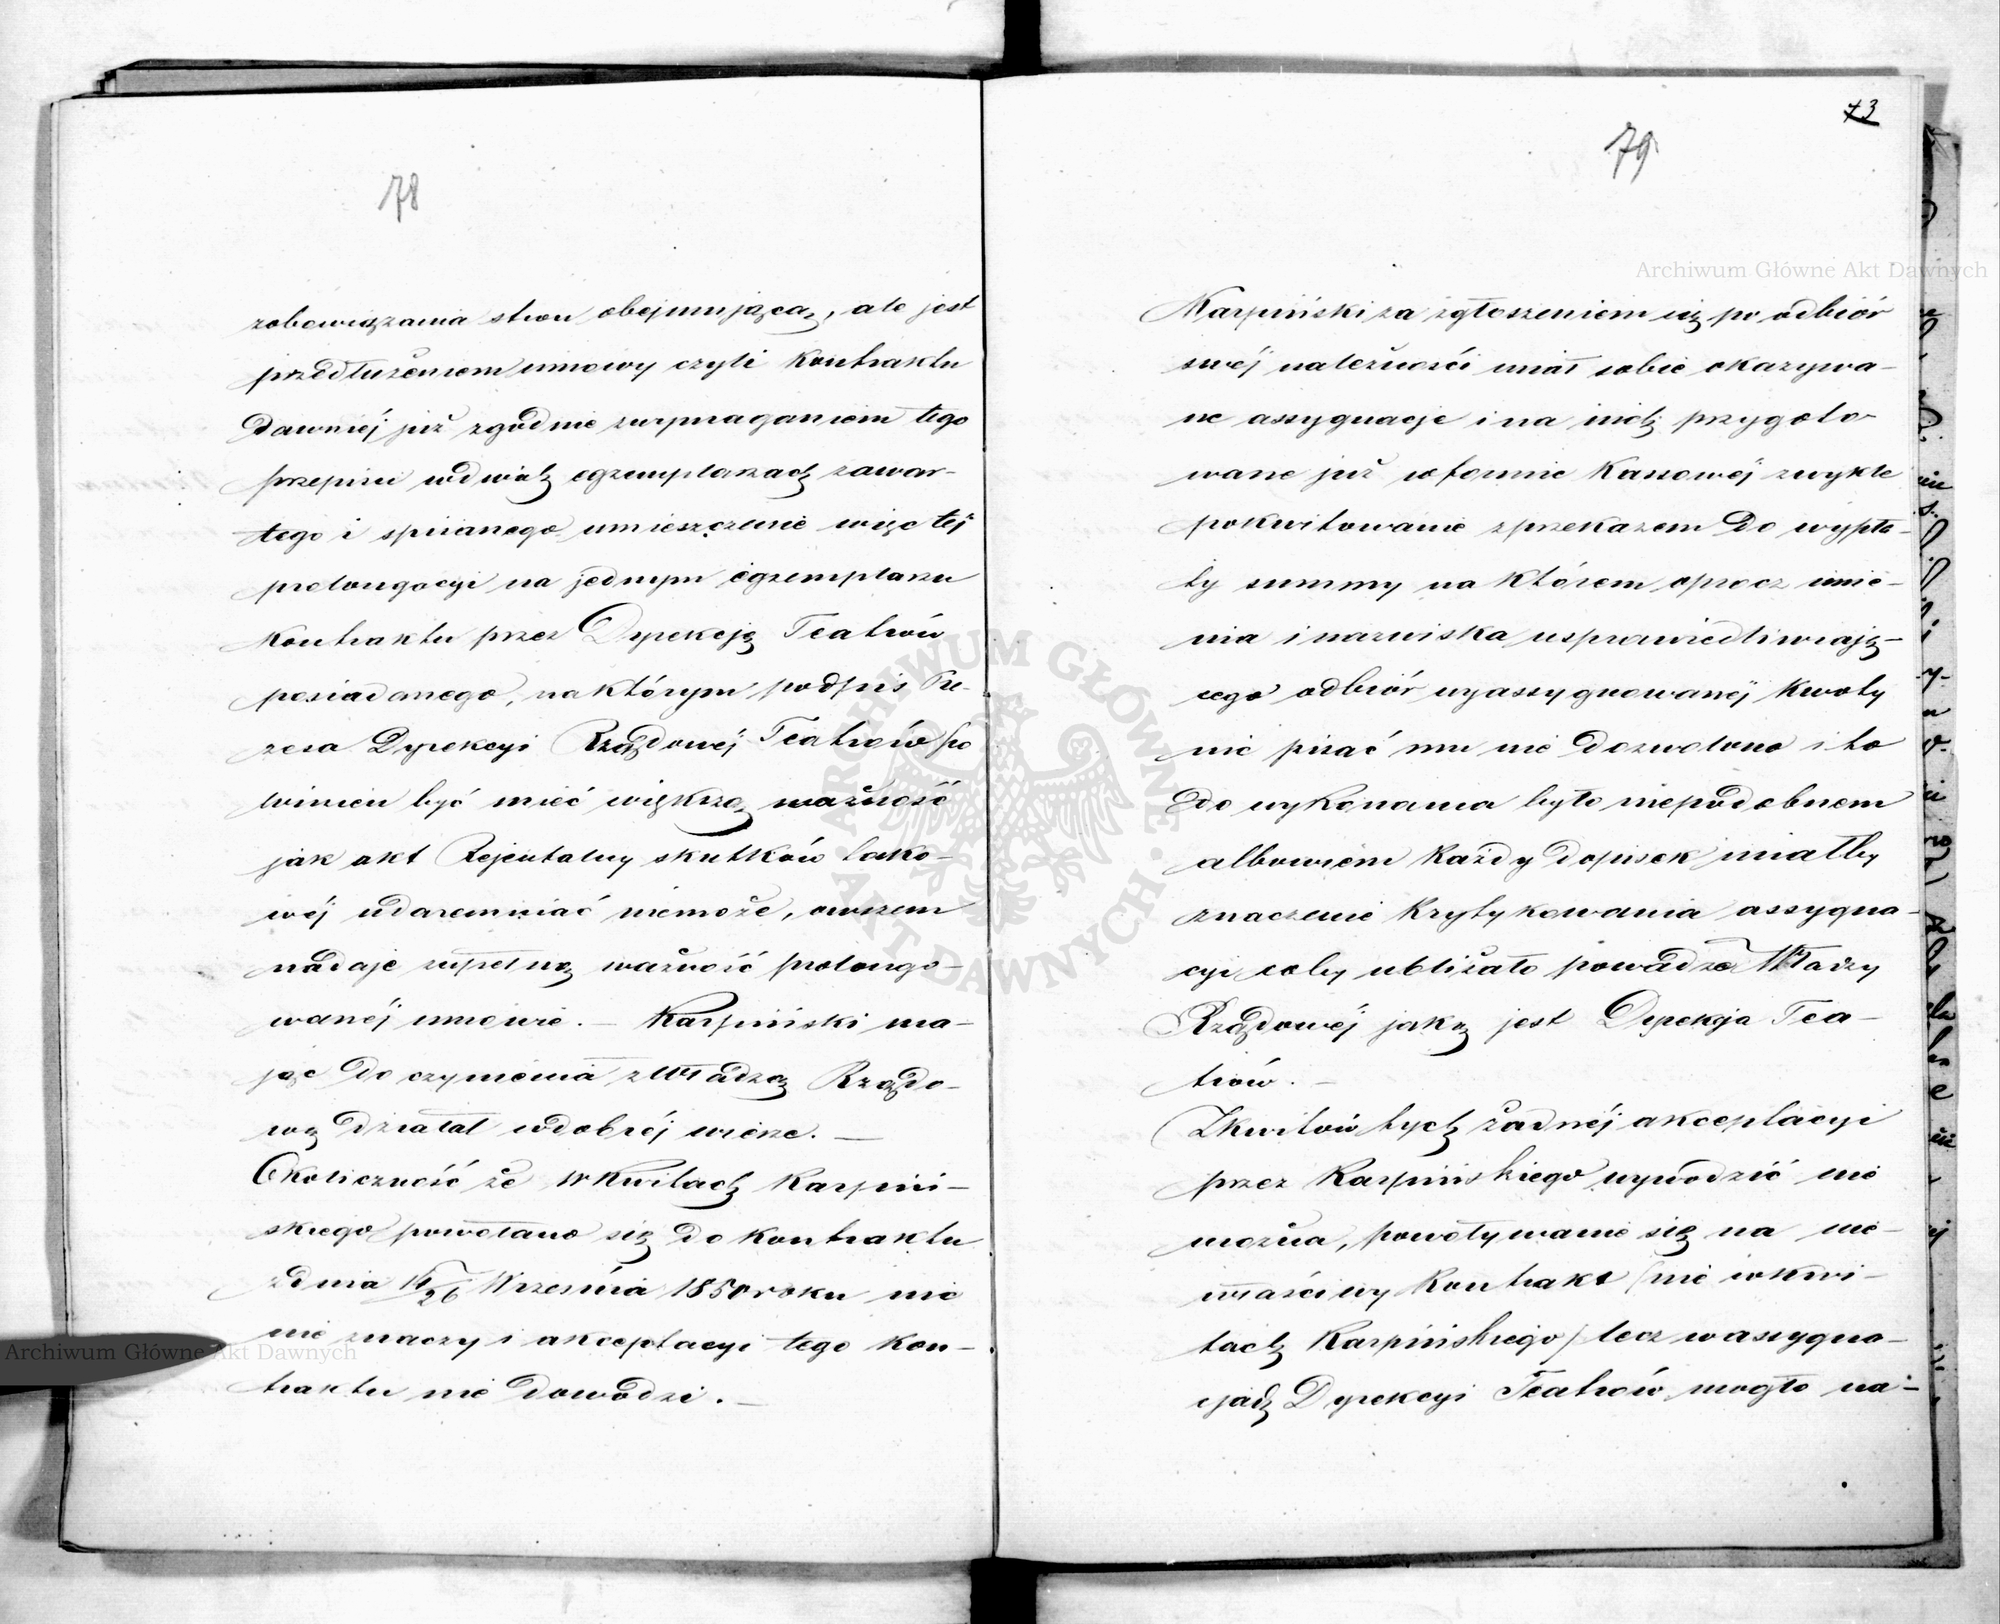 78
zobowiązania stron obejmującą, ale jest
przedłużeniem umowy czyli Kontraktu
dawniéj już zgodnie z wymaganiem tego
przepisu w dwóch egzemplarzach zawar-
tego i spisanego umieszczenie więc téj
prolongacyi na jednym egzemplarzu
Kontraktu przez Dyrekcję Teatrów
posiadanego, na którym podpis Pre-
zesa Dyrekcyi Rządowéj Teatrów po
winien być mieć większą ważność
jak akt Rejentalny skutków tako-
wéj udaremniać niemoże, owszem
nadaje zupełną ważność prolongo-
wanéj umowie. — Karpiński ma-
jąc do czynienia z Władzą Rządo-
wą działał w dobréj wierze. —
Okoliczność że w Kwitach Karpiń-
skiego powołano się do Kontraktu
z dnia 14/26 Września 1850 roku nic
nie znaczy i akceptacyi tego Kon-
traktu nie dowodzi. —
73
79
Karpiński za zgłoszeniem się po odbiór
swéj należności miał sobie okazywa-
ne assygnacje i na nich przygoto-
wane już w formie Kassowéj zwykłe
pokwitowanie z przekazem do wypła-
ty summy na którem oprócz imie-
nia i nazwiska usprawiedliwiają-
cego odbiór wyassygnowanéj Kwoty
nic pisać mu nie dozwolono i to
do wykonania było niepodobnem
albowiem Każdy dopisek miałby
znaczenie Krytykowania assygna-
cyi coby ubliżało powadze Władzy
Rządowéj jaką jest Dyrekcja Tea-
trów. —
Z Kwitów tych żadnéj akceptacyi
przez Karpińskiego wywodzić nie
można, powoływanie się na nie-
właściwy Kontrakt /nie w Kwi-
tach Karpińskiego/ lecz w assygna-
cjach Dyrekcyi Teatrów mogło na-
Archiwum Główne Akt Dawnych
Archiwum Główne Akt Dawnych
ARCHIWUM GŁÓWNE · AKT DAWNYCH ·